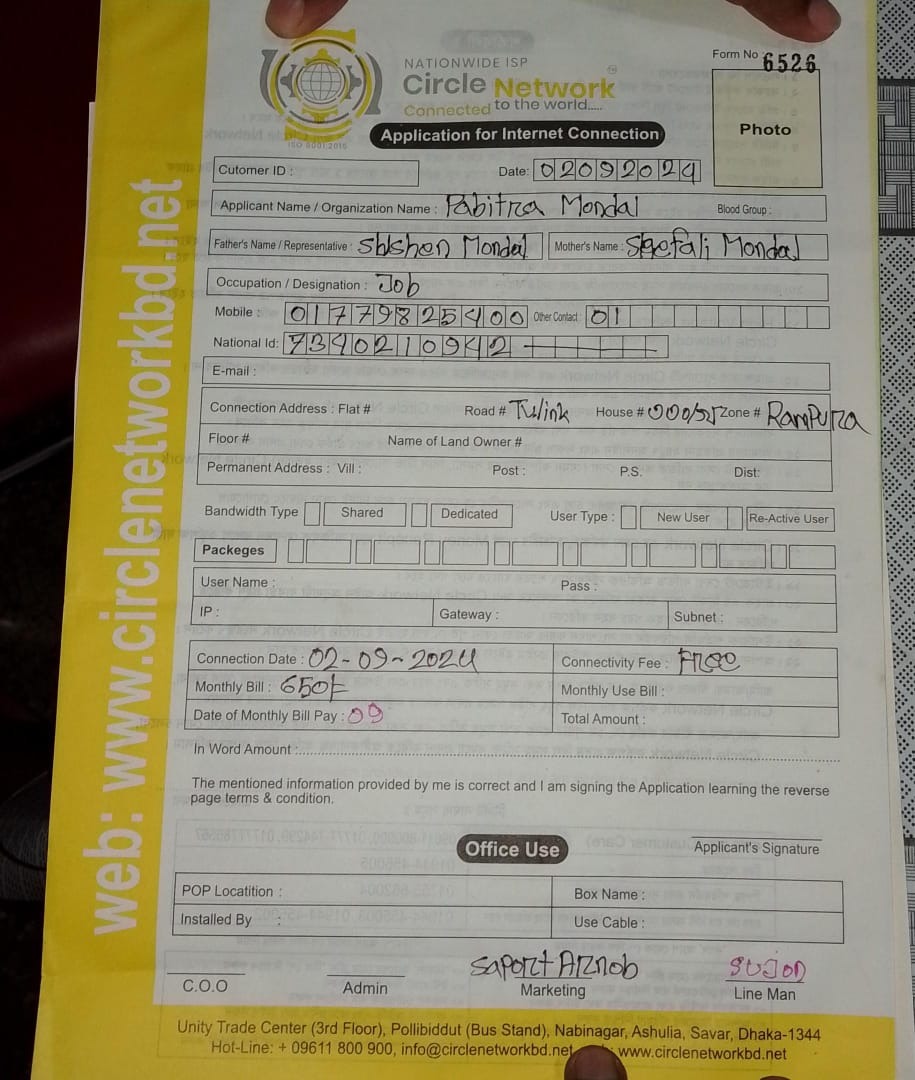 NATIONWIDE ISP
Circle Network
Connected to the world.....
ISO 9001:2015
Form No : 6526
Photo
Application for Internet Connection
Cutomer ID :
Date: 02092024
Applicant Name / Organization Name : Pabitra Mondal Blood Group :
Father's Name / Representative : Sbshen Mondal Mother's Name : Shefali Mondal
Occupation / Designation : Job
Mobile : 01779825400 Other Contact : 01
National Id: 7340210942
E-mail :
Connection Address : Flat # Road # Tulink House # Zone # Rampura
Floor # Name of Land Owner #
Permanent Address : Vill : Post : P.S. Dist:
Bandwidth Type Shared Dedicated User Type : New User Re-Active User
Packeges
User Name : Pass :
IP : Gateway : Subnet :
Connection Date : 02-09-2024 Connectivity Fee : Free
Monthly Bill : 650 Monthly Use Bill :
Date of Monthly Bill Pay : 09 Total Amount :
In Word Amount :
The mentioned information provided by me is correct and I am signing the Application learning the reverse
page terms & condition.
Office Use
Applicant's Signature
POP Locatition : Box Name :
Installed By : Use Cable :
Saport Arnob Sujon
C.O.O Admin Marketing Line Man
Unity Trade Center (3rd Floor), Pollibiddut (Bus Stand), Nabinagar, Ashulia, Savar, Dhaka-1344
Hot-Line: + 09611 800 900, info@circlenetworkbd.net www.circlenetworkbd.net
web: www.circlenetworkbd.net